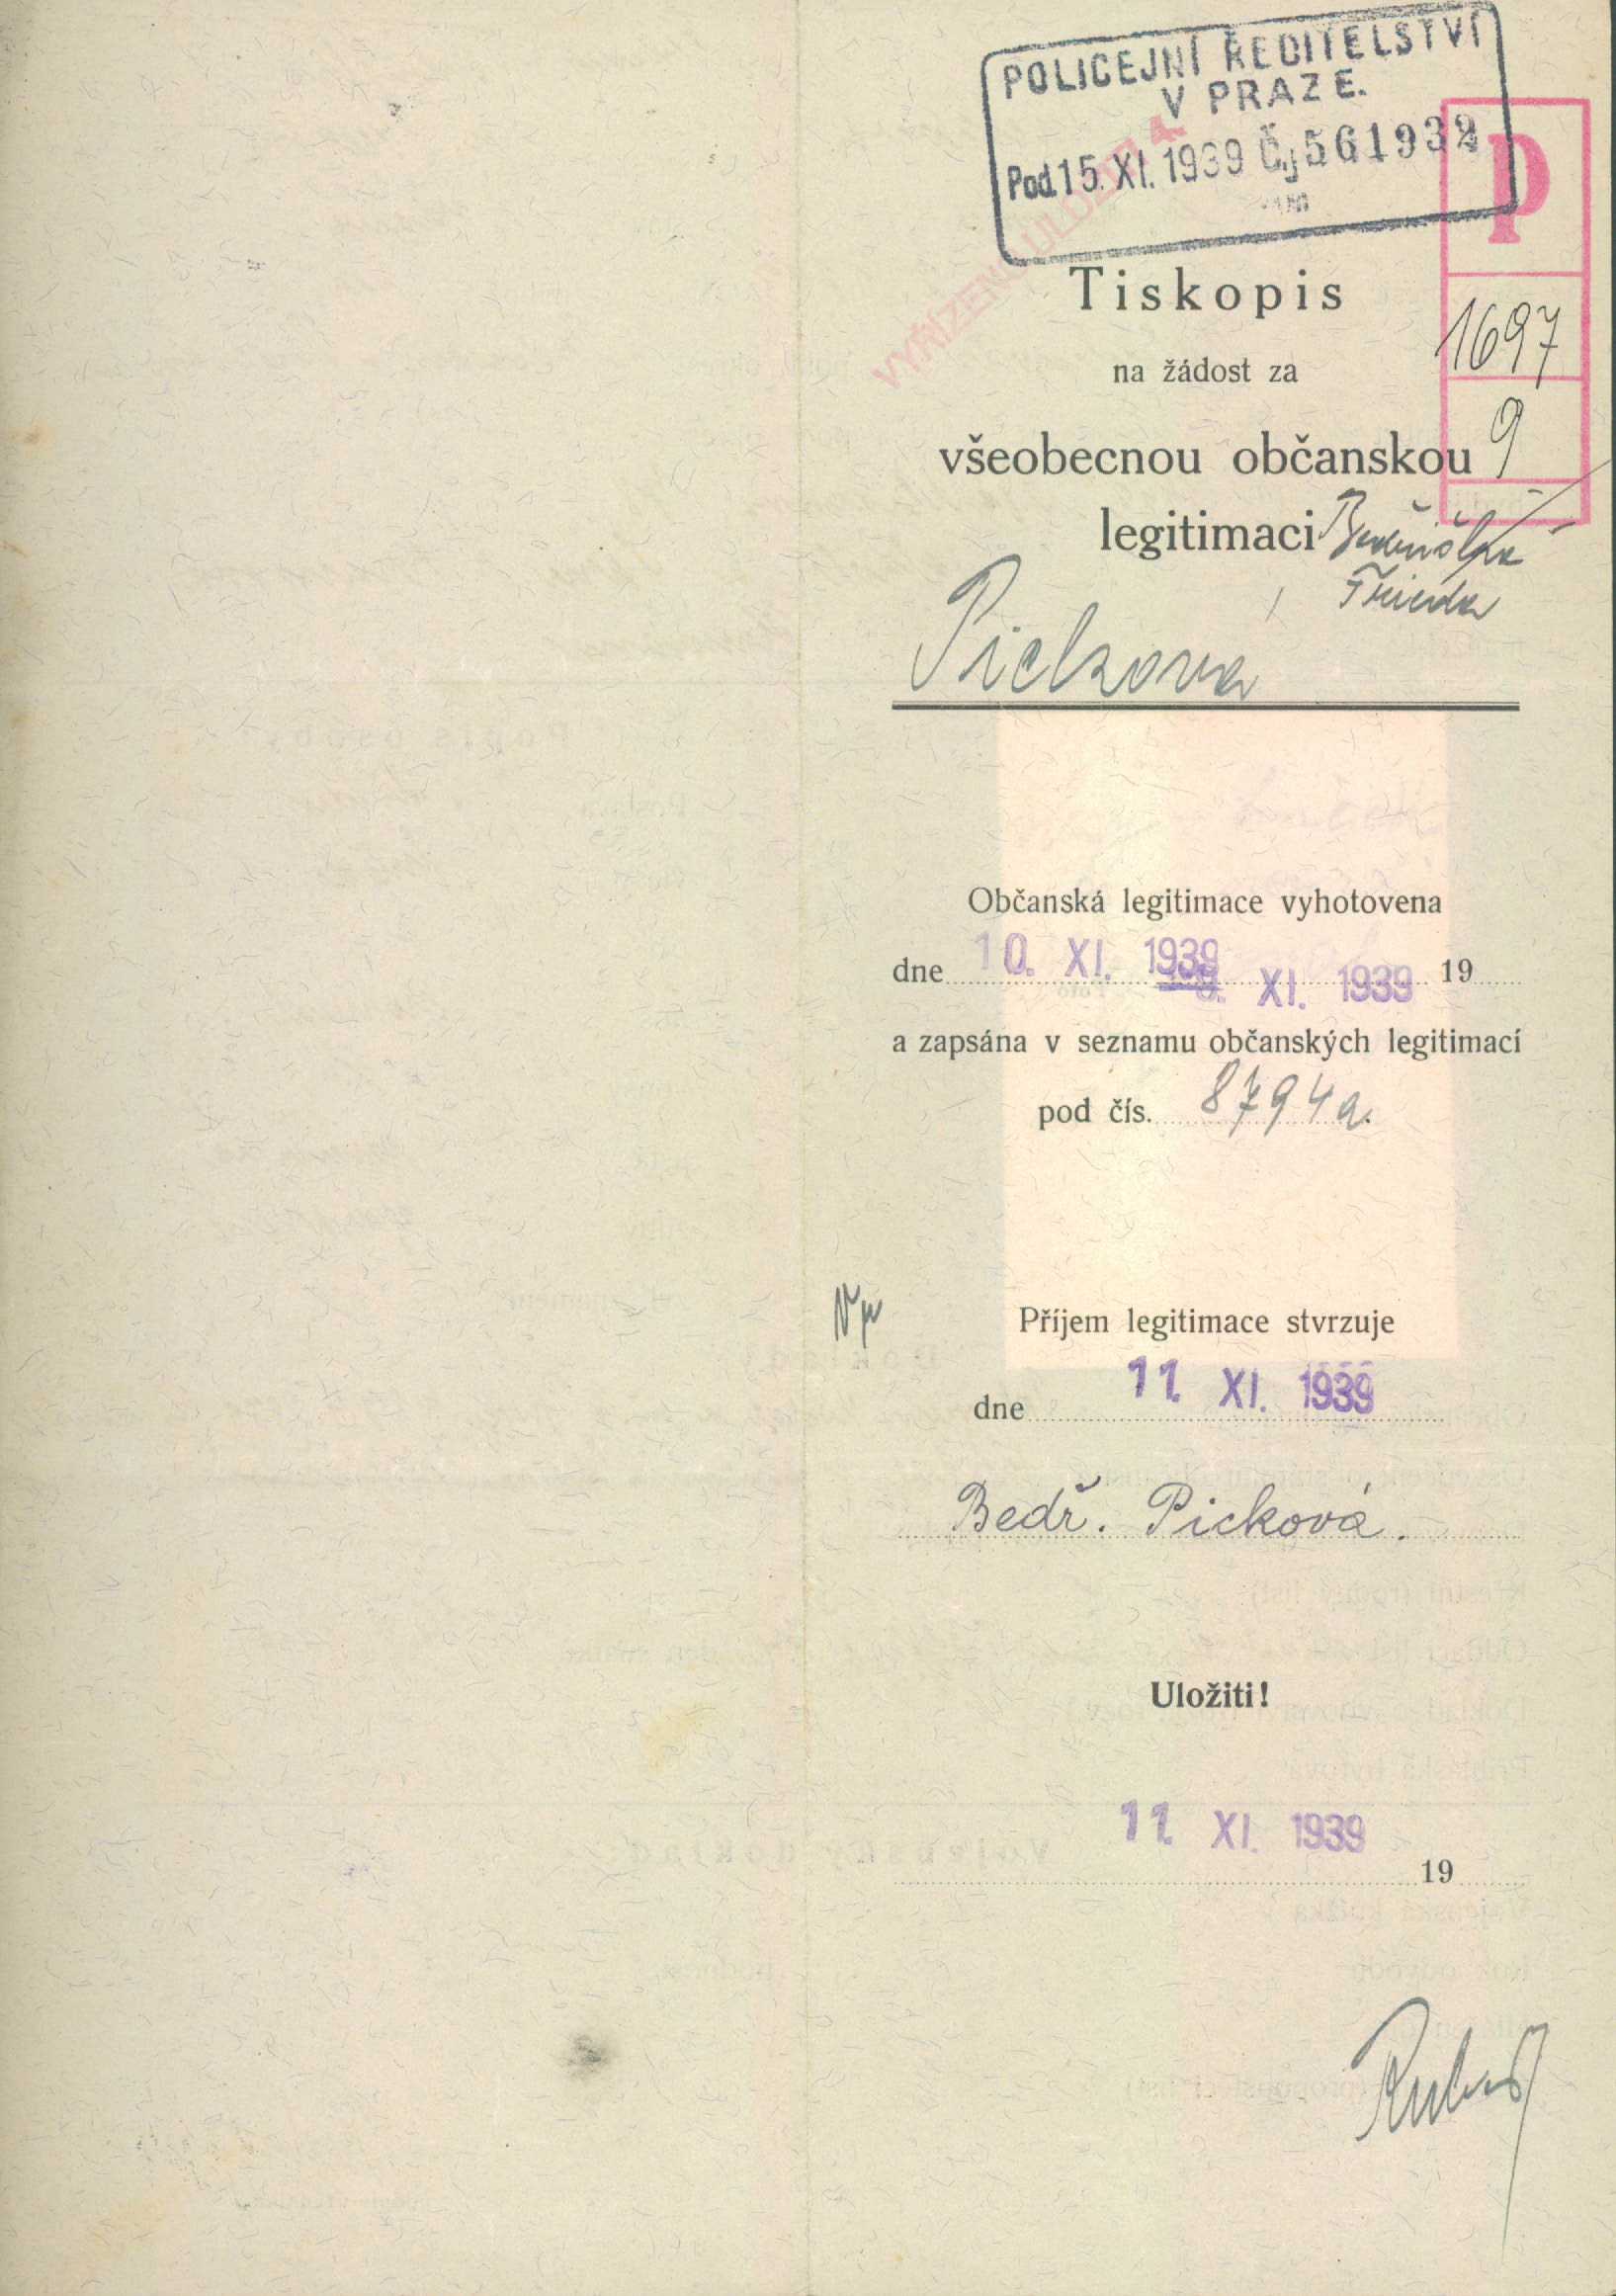 POLICEJNÍ ŘEDITELSTVÍ
V PRAZE.
Pod. 15. XI. 1939 Č.j. 561932
P
VYŘÍZENO ULOŽITI 4.
Tiskopis
1697
na žádost za
9
všeobecnou občanskou
legitimaci
Frieda
Picková
Občanská legitimace vyhotovena
dne 10. XI. 1939 XI. 1939 19
a zapsána v seznamu občanských legitimací
pod čís. 8794a.
Příjem legitimace stvrzuje
dne 11. XI. 1939
Bedř. Picková.
Uložiti!
11. XI. 1939
19